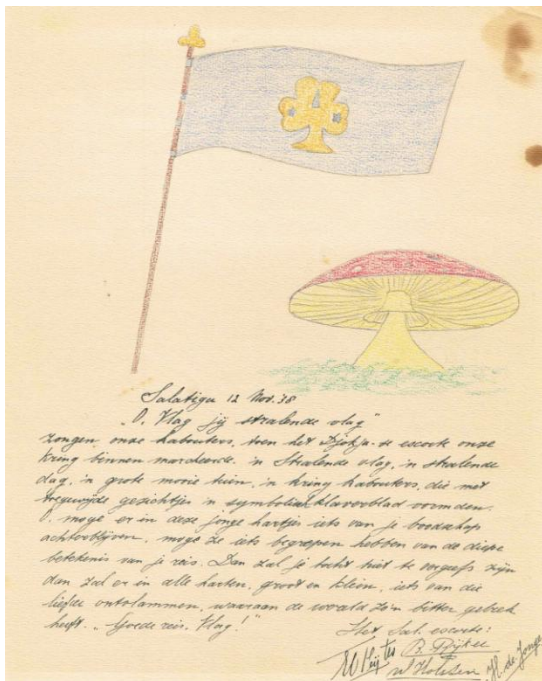 Salatiga 12 Nov. 38
"O, Vlag jij stralende vlag"
zongen onze kabouters, toen het Djokja-se escorte onze
kring binnen marcheerde. in Stralende vlag, in stralende
dag, in grote mooie tuin, in kring kabouters, die met
gezichtjes in symbolies klaverblad vormden.
O, moge er in deze jonge hartjes iets van je boodschap
achterblijven, moge ze iets begrepen hebben van de diepe
betekenis van je reis. Dan zal je tocht niet te vergeefs zijn
dan zal er in alle harten, groot en klein, iets van die
liefde ontvlammen, waaraan de wereld zo'n bitter gebrek
heeft. "Goede reis, Vlag!"
Het Sal. escorte:
H. de Jonge